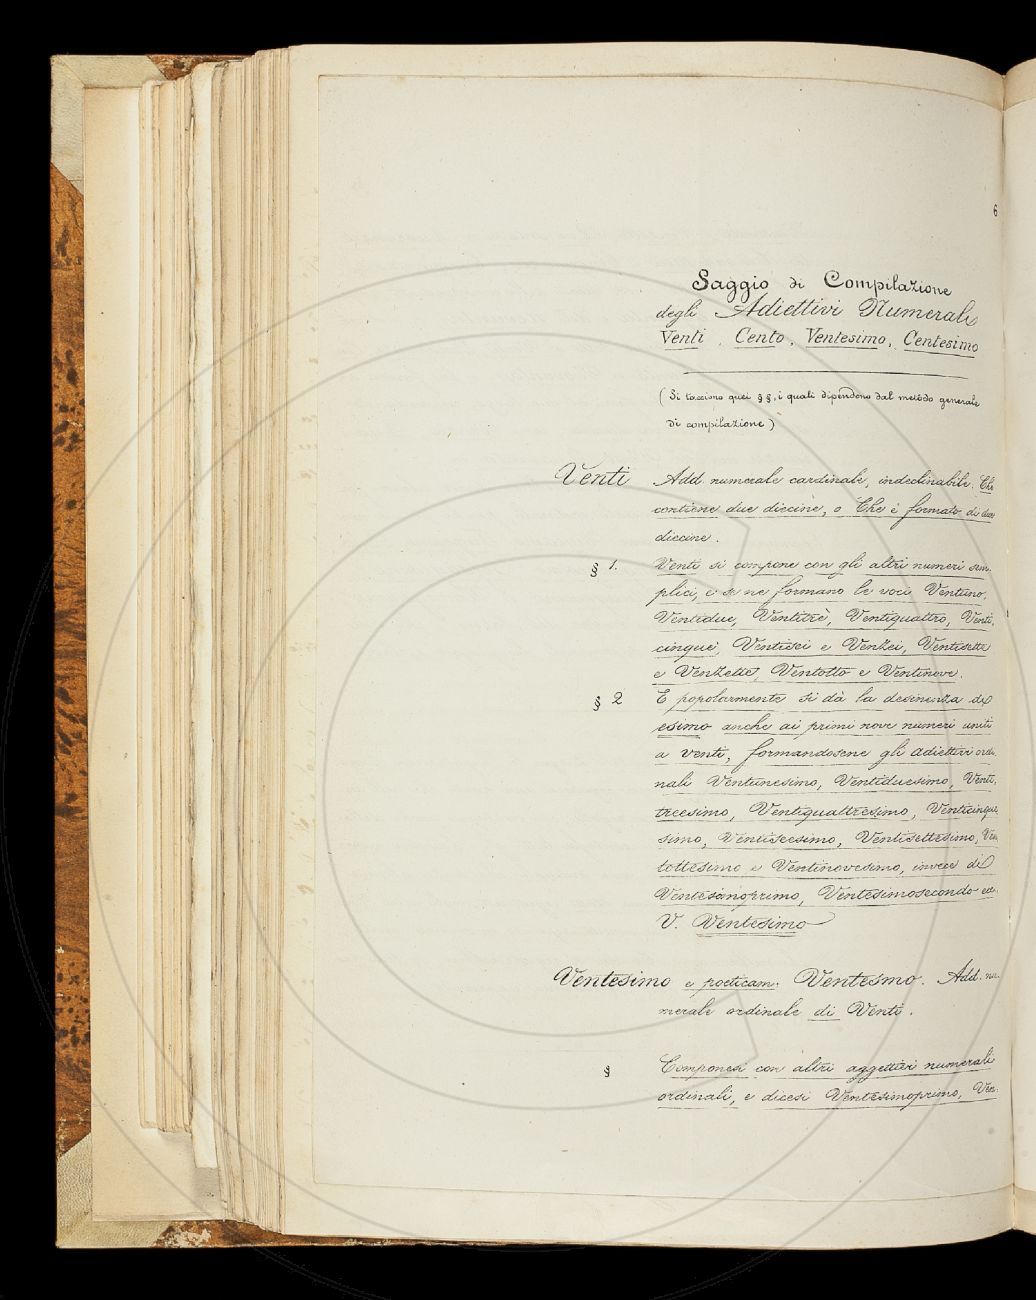 6
Saggio di Compilazione
degli Adiettivi Numerali
Venti, Cento, Ventesimo, Centesimo
(Si tacciono quei §§, i quali dipendono dal metodo generale
di compilazione)
Venti Add. numerale cardinale, indeclinabile. Che
contiene due diecine, o Che è formato di due
diecine.
§ 1. Venti si compone con gli altri numeri sem-
plici, e se ne formano le voci Ventuno,
Ventidue, Ventitrè, Ventiquattro, Venti-
cinque, Ventisei e Venzei, Ventisette
e Venzette, Ventotto e Ventinove.
§ 2 E popolarmente si dà la desinenza di
esimo anche ai primi nove numeri uniti
a venti, formandosene gli adiettivi ordi-
nali Ventunesimo, Ventiduesimo, Venti-
treesimo, Ventiquattresimo, Venticinque-
simo, Ventiseesimo, Ventisettesimo, Ven-
tottesimo e Ventinovesimo, invece di
Ventesimoprimo, Ventesimosecondo ec.
V. Ventesimo
Ventesimo e poeticam. Ventesmo. Add. nu-
merale ordinale di Venti.
§ Componesi con altri aggettivi numerali
ordinali, e dicesi Ventesimoprimo, Ven-